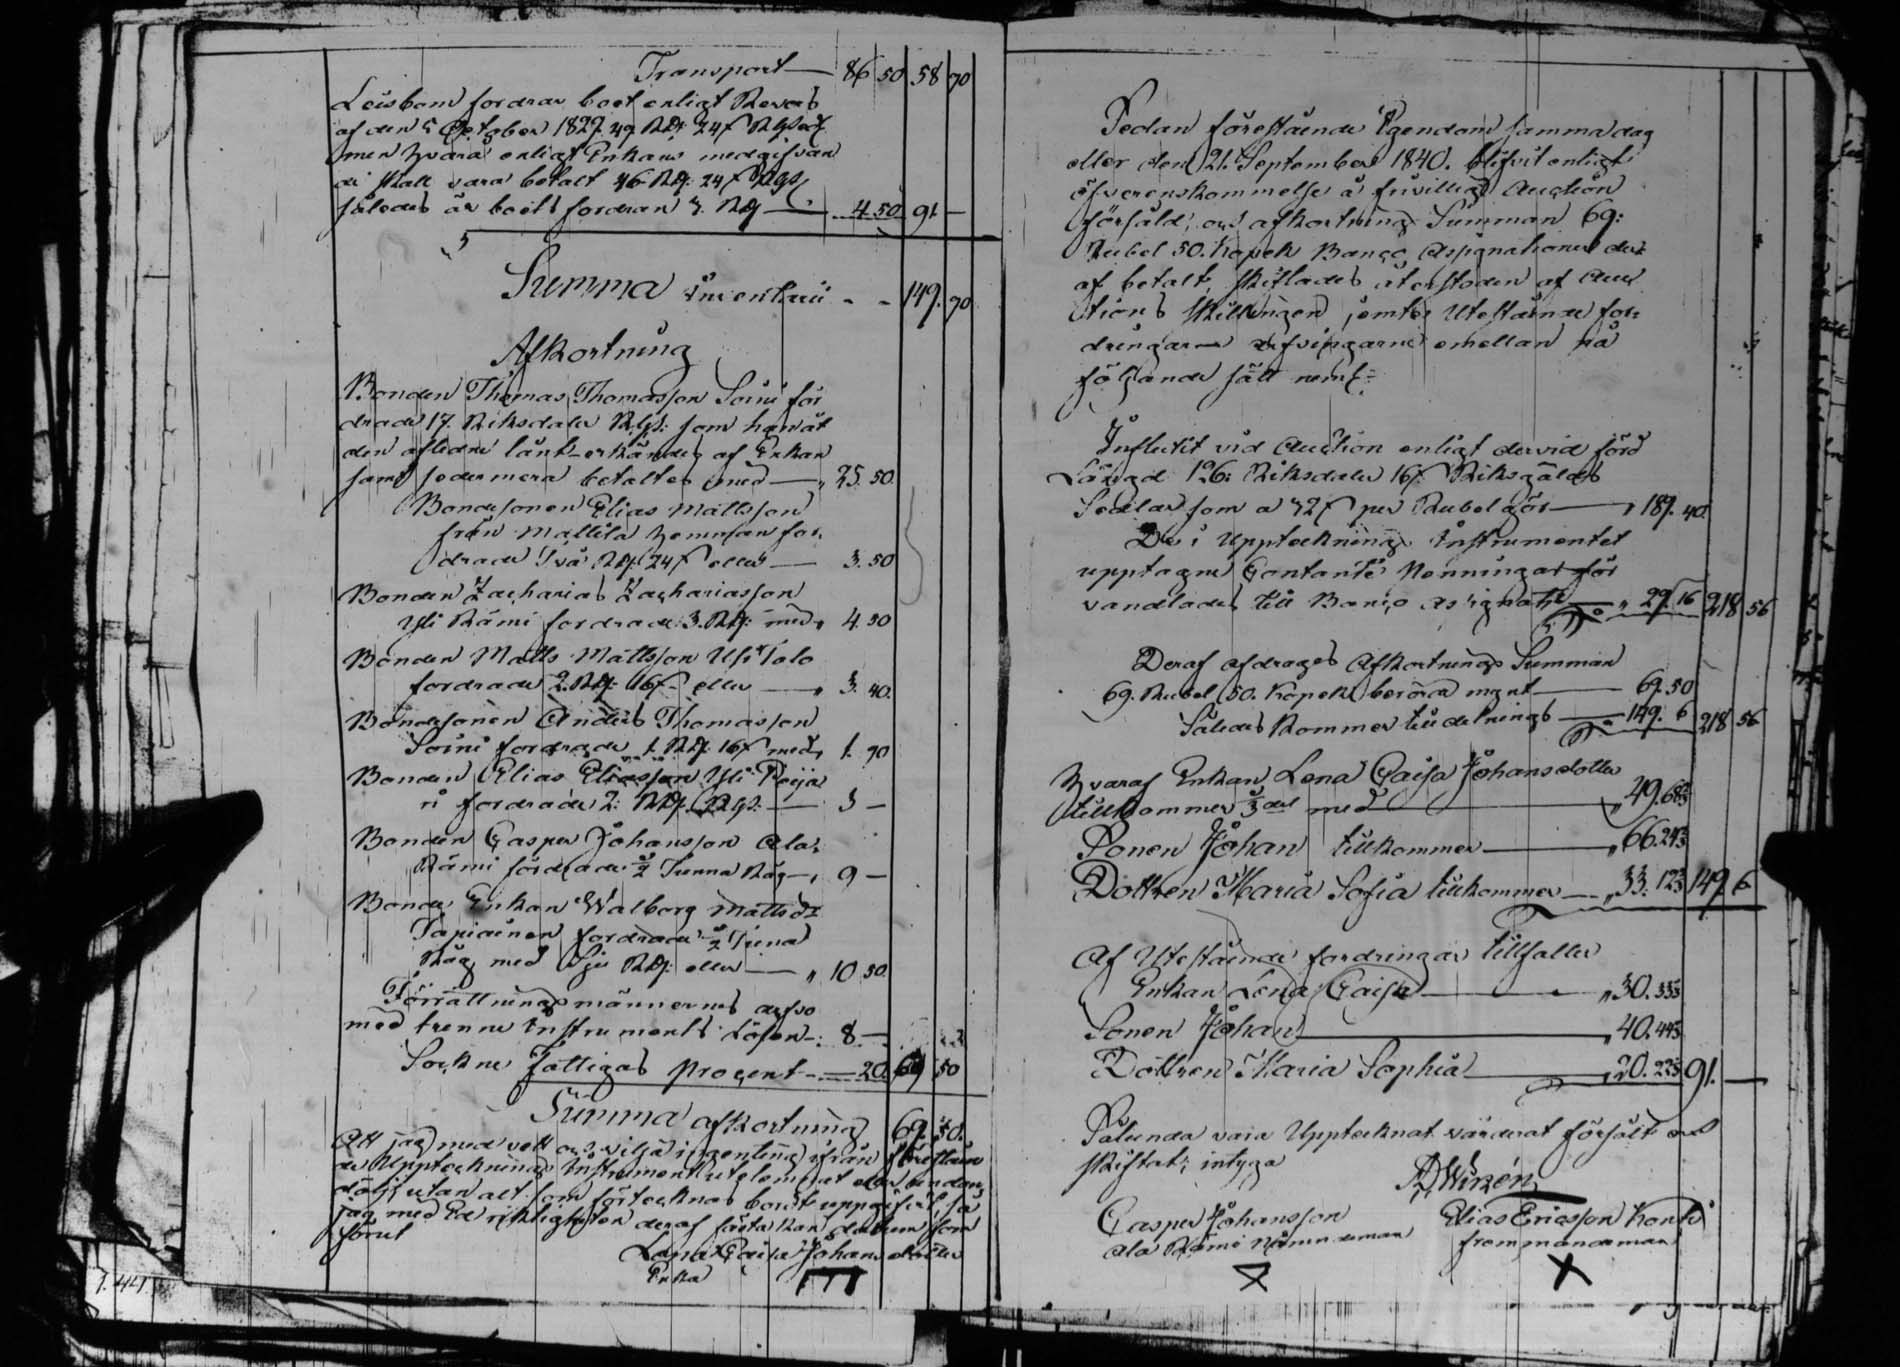 Transport — 86 50 58 70
fordrar boet enligt Revers
af den 5 October 1829. 49 RD. 24 s RGs
men hvaraf enligt Enkans medgifvan
de skall vara betalt 46 RD. 24 s RGs
således är boets fordran 3. RD — 4.50 91 —
Summa Inventarii - - 149. 70
Afkortning
Bonden Thomas Thomasson Soini for
drade 17. Riksdaler RGs: som han åt
den aflidne lånt erkändes af Enkan
samt sedermera betaltes med — „ 25. 50.
Bondesonen Elias Mattsson
från Mattila hemman for-
drade Två RD: 24 s eller — 3. 50
Bonden Zacharias Zachariasson
Yli Rämi fordrade 3. RD: med „ 4. 50
Bonden Matts Mattsson Ylitalo
fordrade 2. RD: 16 s eller — „ 3. 40.
Bondesonen Anders Thomasson
Soini fordrade 1. RD. 16 s med „ 1. 90
Bonden Elias Eliasson Yli Peija
ri fordrade 2: RD. RGs. — 3 —
Bonden Casper Johansson Ala
Rämi fordrade ½ Tunna Råg — „ 9 —
Bonde Enkan Walborg Mattsdr
fordrade ½ Tunna
Råg med Sju RD: eller — „ 10 50.
Förrättningsmännernes arfvo
med trenne Instruments Lösen -: 8 —
Sockne Fattigas procent — 20. 69 50
Summa afkortning 69. 50.
Att jag med vett och vilja ingenting ifrån förestående
Upptecknings Instrument utelemnat eller undan
döljt utan alt som förtecknas bordt uppgifvit, så
jag med Ed riktigheten deraf fästa kan datum som
förut
Lena Caisa Johansdotter
Enka
Sedan förestående Egendom samma dag
eller den 21. September 1840. blifvit enligt
öfverenskommelse å frivillig Auction
försåld, och afkortnings Summan 69:
Rubel 50. Kopek Banco Assignationer der
af betalt, skiftades återstoden af Auc
tions skillingen jemte Utestående for-
dringarne arfvingarne emellan på
följande sätt neml:
Influtit vid Auction enligt dervid förd
Längd 126: Riksdaler 16 s Riksgälds
Sedlar som a 32 s per Rubel gör — „ 189. 40.
De i Upptecknings Instrumentet
upptagne Contante Penningar för
vandlades till Banco Assignat: — „ 29. 16 218 56
Deraf afdrages Afkortnings Summan
69. Rubel 50. Kopek berörde mynt — 69. 50
Således kommer till delnings — 149. 6 218 56
Hvaraf Enkan Lena Caisa Johansdotter
tillkommer ⅓ del med — „ 49. 68⅔
Sonen Johan tillkommer — „ 66. 24⅔
Dottren Maria Sofia tillkommer — „ 33. 12⅔ 149. 6
Af Utestående fordringar tillfaller
Enkan Lena Caisa — „ 30. 33⅓
Sonen Johan — „ 40. 44⅓
Dottren Maria Sophia — „ 20. 22⅓ 91. —
Sålunda vara Upptecknat värderat försålt och
skiftat; intyga
Casper Johansson Elias Ericsson Konti
Ala Rämi Nämndeman
X X